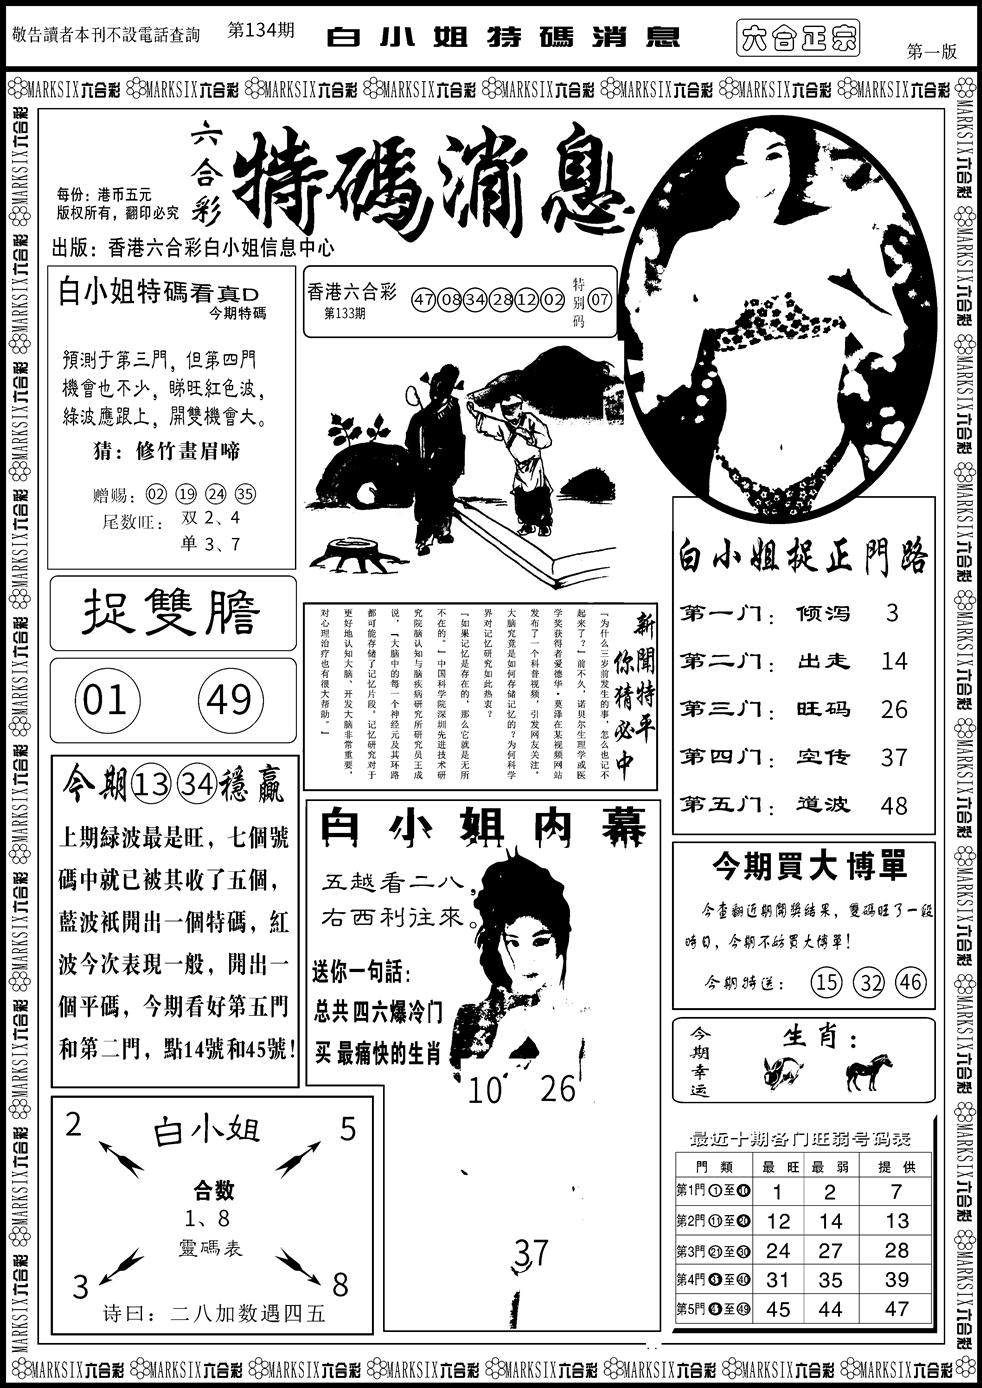 敬告讀者本刊不設電話查詢
第134期
白小姐特碼消息
六合正宗
第一版
MARKSIX六合彩 MARKSIX六合彩 MARKSIX六合彩 MARKSIX六合彩 MARKSIX六合彩 MARKSIX六合彩 MARKSIX六合彩 MARKSIX六合彩
六合彩
特碼消息
每份：港币五元
版权所有，翻印必究
出版：香港六合彩白小姐信息中心
白小姐特碼看真D
今期特碼
預測于第三門，但第四門
機會也不少，睇旺紅色波，
綠波應跟上，開雙機會大。
猜：修竹畫眉啼
赠赐：02 19 24 35
尾数旺：双2、4
单3、7
香港六合彩
第133期
47 08 34 28 12 02
特别码
07
捉雙膽
01 49
新聞特平
你猜必中
『为什么三岁前发生的事，怎么也记不
起来了？』前不久，诺贝尔生理学或医
学奖获得者爱德华·莫泽在某视频网站
发布了一个科普视频，引发网友关注。
大脑究竟是如何存储记忆的？为何科学
界对记忆研究如此热衷？
『如果记忆是存在的，那么它就是无所
不在的。』中国科学院深圳先进技术研
究院脑认知与脑疾病研究所研究员王成
说，『大脑中的每一个神经元及其环路
都可能存储了记忆片段，记忆研究对于
更好地认知大脑、开发大脑非常重要，
对心理治疗也有很大帮助。』
白小姐捉正門路
第一门：倾泻 3
第二门：出走 14
第三门：旺码 26
第四门：空传 37
第五门：道波 48
今期13 34穩贏
上期緑波最是旺，七個號
碼中就已被其收了五個，
藍波衹開出一個特碼，紅
波今次表現一般，開出一
個平碼，今期看好第五門
和第二門，點14號和45號！
白小姐内幕
五越看二八，
右西利往來。
送你一句話：
总共四六爆冷门
买最痛快的生肖
10 26
37
今期買大博單
今查翻近期開獎結果，雙碼旺了一段
時日，今期不妨買大博單！
今期特送：15 32 46
今期幸运
生肖：
2
5
白小姐
合数
1、8
靈碼表
3
8
诗曰：二八加数遇四五
最近十期各门旺弱号码表
門類 最旺 最弱 提供
第1門①至⑩ 1 2 7
第2門⑪至⑳ 12 14 13
第3門㉑至㉚ 24 27 28
第4門㉛至㊵ 31 35 39
第5門㊶至㊾ 45 44 47
MARKSIX六合彩 MARKSIX六合彩 MARKSIX六合彩 MARKSIX六合彩 MARKSIX六合彩 MARKSIX六合彩 MARKSIX六合彩 MARKSIX六合彩